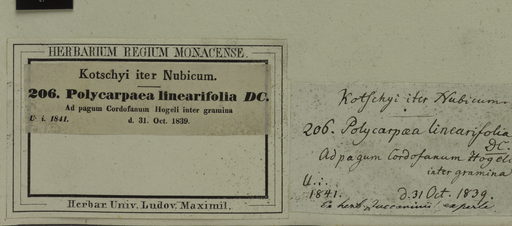 HERBARIUM REGIUM MONACENSE.
Kotschyi iter Nubicum.
206. Polycarpaea linearifolia DC.
Ad pagum Cordofanum Hogeli inter gramina
U. i. 1841. d. 31. Oct. 1839.
Herbar. Univ. Ludov. Maximil.
Kotschyi iter Nubicum.
206. Polycarpæa linearifolia
DC.
Ad pagum Cordofanum Hogeli
inter gramina
U. i.
1841. d. 31 Oct. 1839.
Ex herb. Zuccarinii ex parte